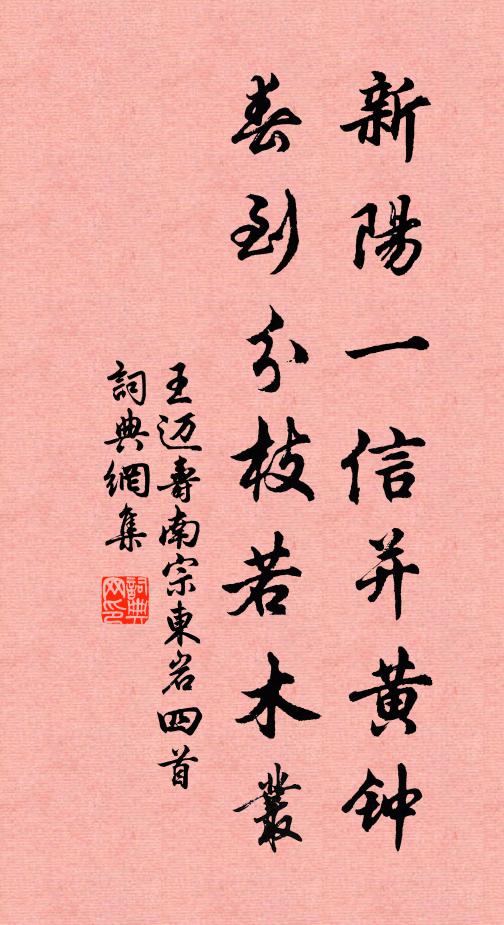 新陽一信并黄钟
春到分枝若木叢
王迈壽南宗東岩四首
詞典網集
詞典网印